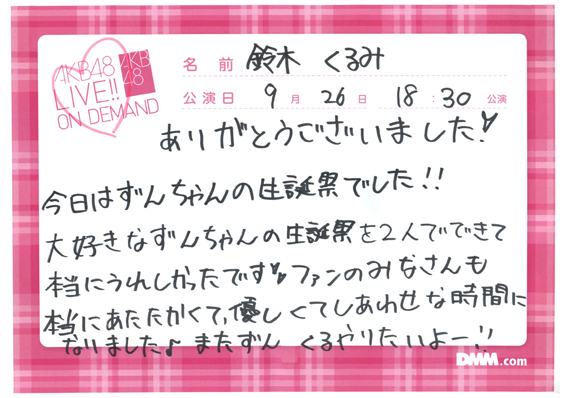 AKB48
LIVE!!
ON DEMAND
AKB
48
名前 鈴木 くるみ
公演日 9月 26日 18:30 公演
ありがとうございました!♡
今日はずんちゃんの生誕祭でした!!
大好きなずんちゃんの生誕祭を2人でできて
本当にうれしかったです♡ファンのみなさんも
本当にあたたかくて、優しくてしあわせな時間に
なりました♪ またずん くるやりたいよー!!
DMM.com